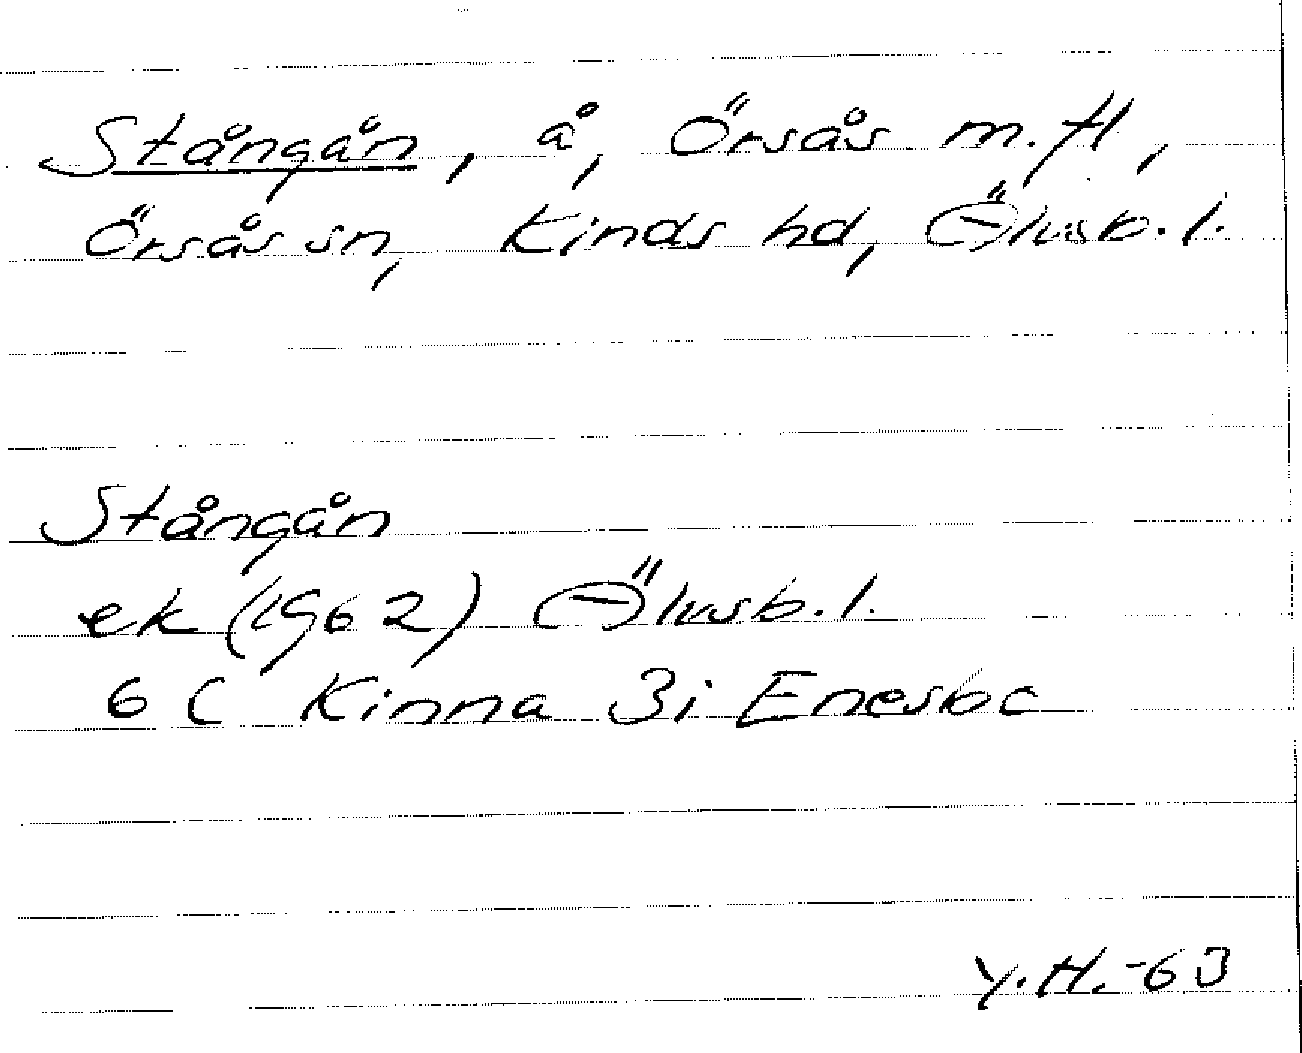 Stångån, å, Örsås m.fl,
Örsås sn, Kinds hd, Älvsb.l.
Stångån
ek (1962) Älvsb.l.
6 C Kinna 3i Enesbo
Y.H.-63